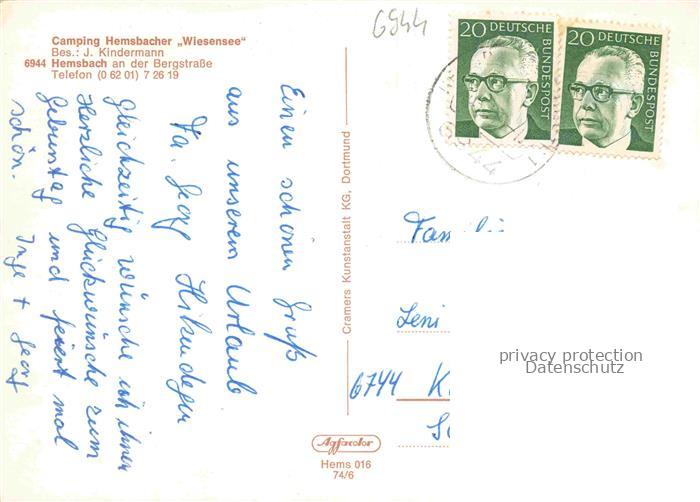 6944
Camping Hemsbacher „Wiesensee"
Bes.: J. Kindermann
6944 Hemsbach an der Bergstraße
Telefon (0 62 01) 7 26 19
20 DEUTSCHE BUNDESPOST
20 DEUTSCHE BUNDESPOST
Einen schönen Gruß
aus unserem Urlaub
Fa. Georg
Gleichzeitig wünsche ich ihnen
Herzliche Glückwünsche zum
Geburtstag und feiert mal
schön. Inge + Georg
Cramers Kunstanstalt KG, Dortmund
Leni
6744 K
privacy protection
Datenschutz
Agfacolor
Hems 016
74/6